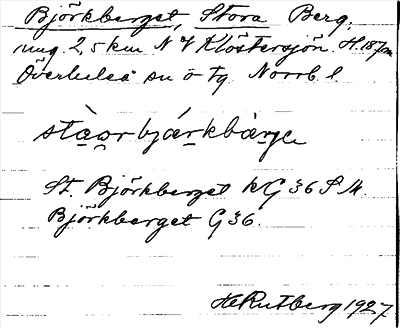 Björkberget, Stora Berg,
ung. 2,5 km N V Klöstersjön. H. 187 m
Överluleå sn ö tg. Norrb. l.
stàorbjárkbàrge
St. Björkberget kG 36 S M.
Björkberget G 36.
HERutberg 1927